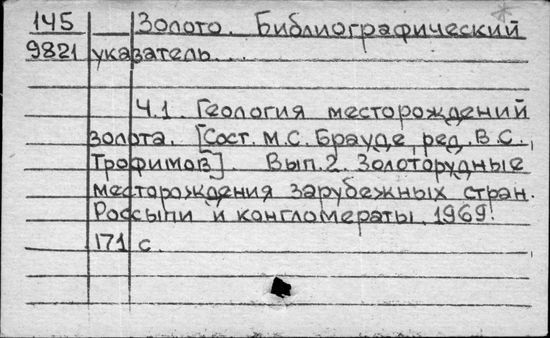 145 Золото. Библиографический
9821 указатель...
Ч.1. Геология месторождений
золота. [Сост. М.С. Брауде, ред. В.С.,
Трофимов] Вып.2. Золоторудные
месторождения зарубежных стран.
Россыпи и конгломераты. 1969.
171 с.